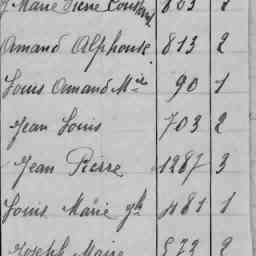 Marie Pierre Constant 803
Amand Alphonse 813 2
Louis Amand Mie 90 1
Jean Louis 703 2
Jean Pierre 1287 3
Louis Marie 481 1
Joseph Marie 573 2